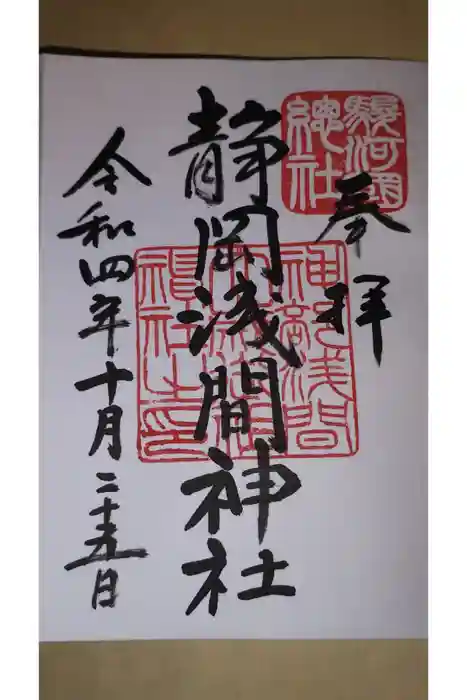 奉拝
駿河國
總社
静岡浅間神社
神部浅間
神社之印
令和四年十月二十五日